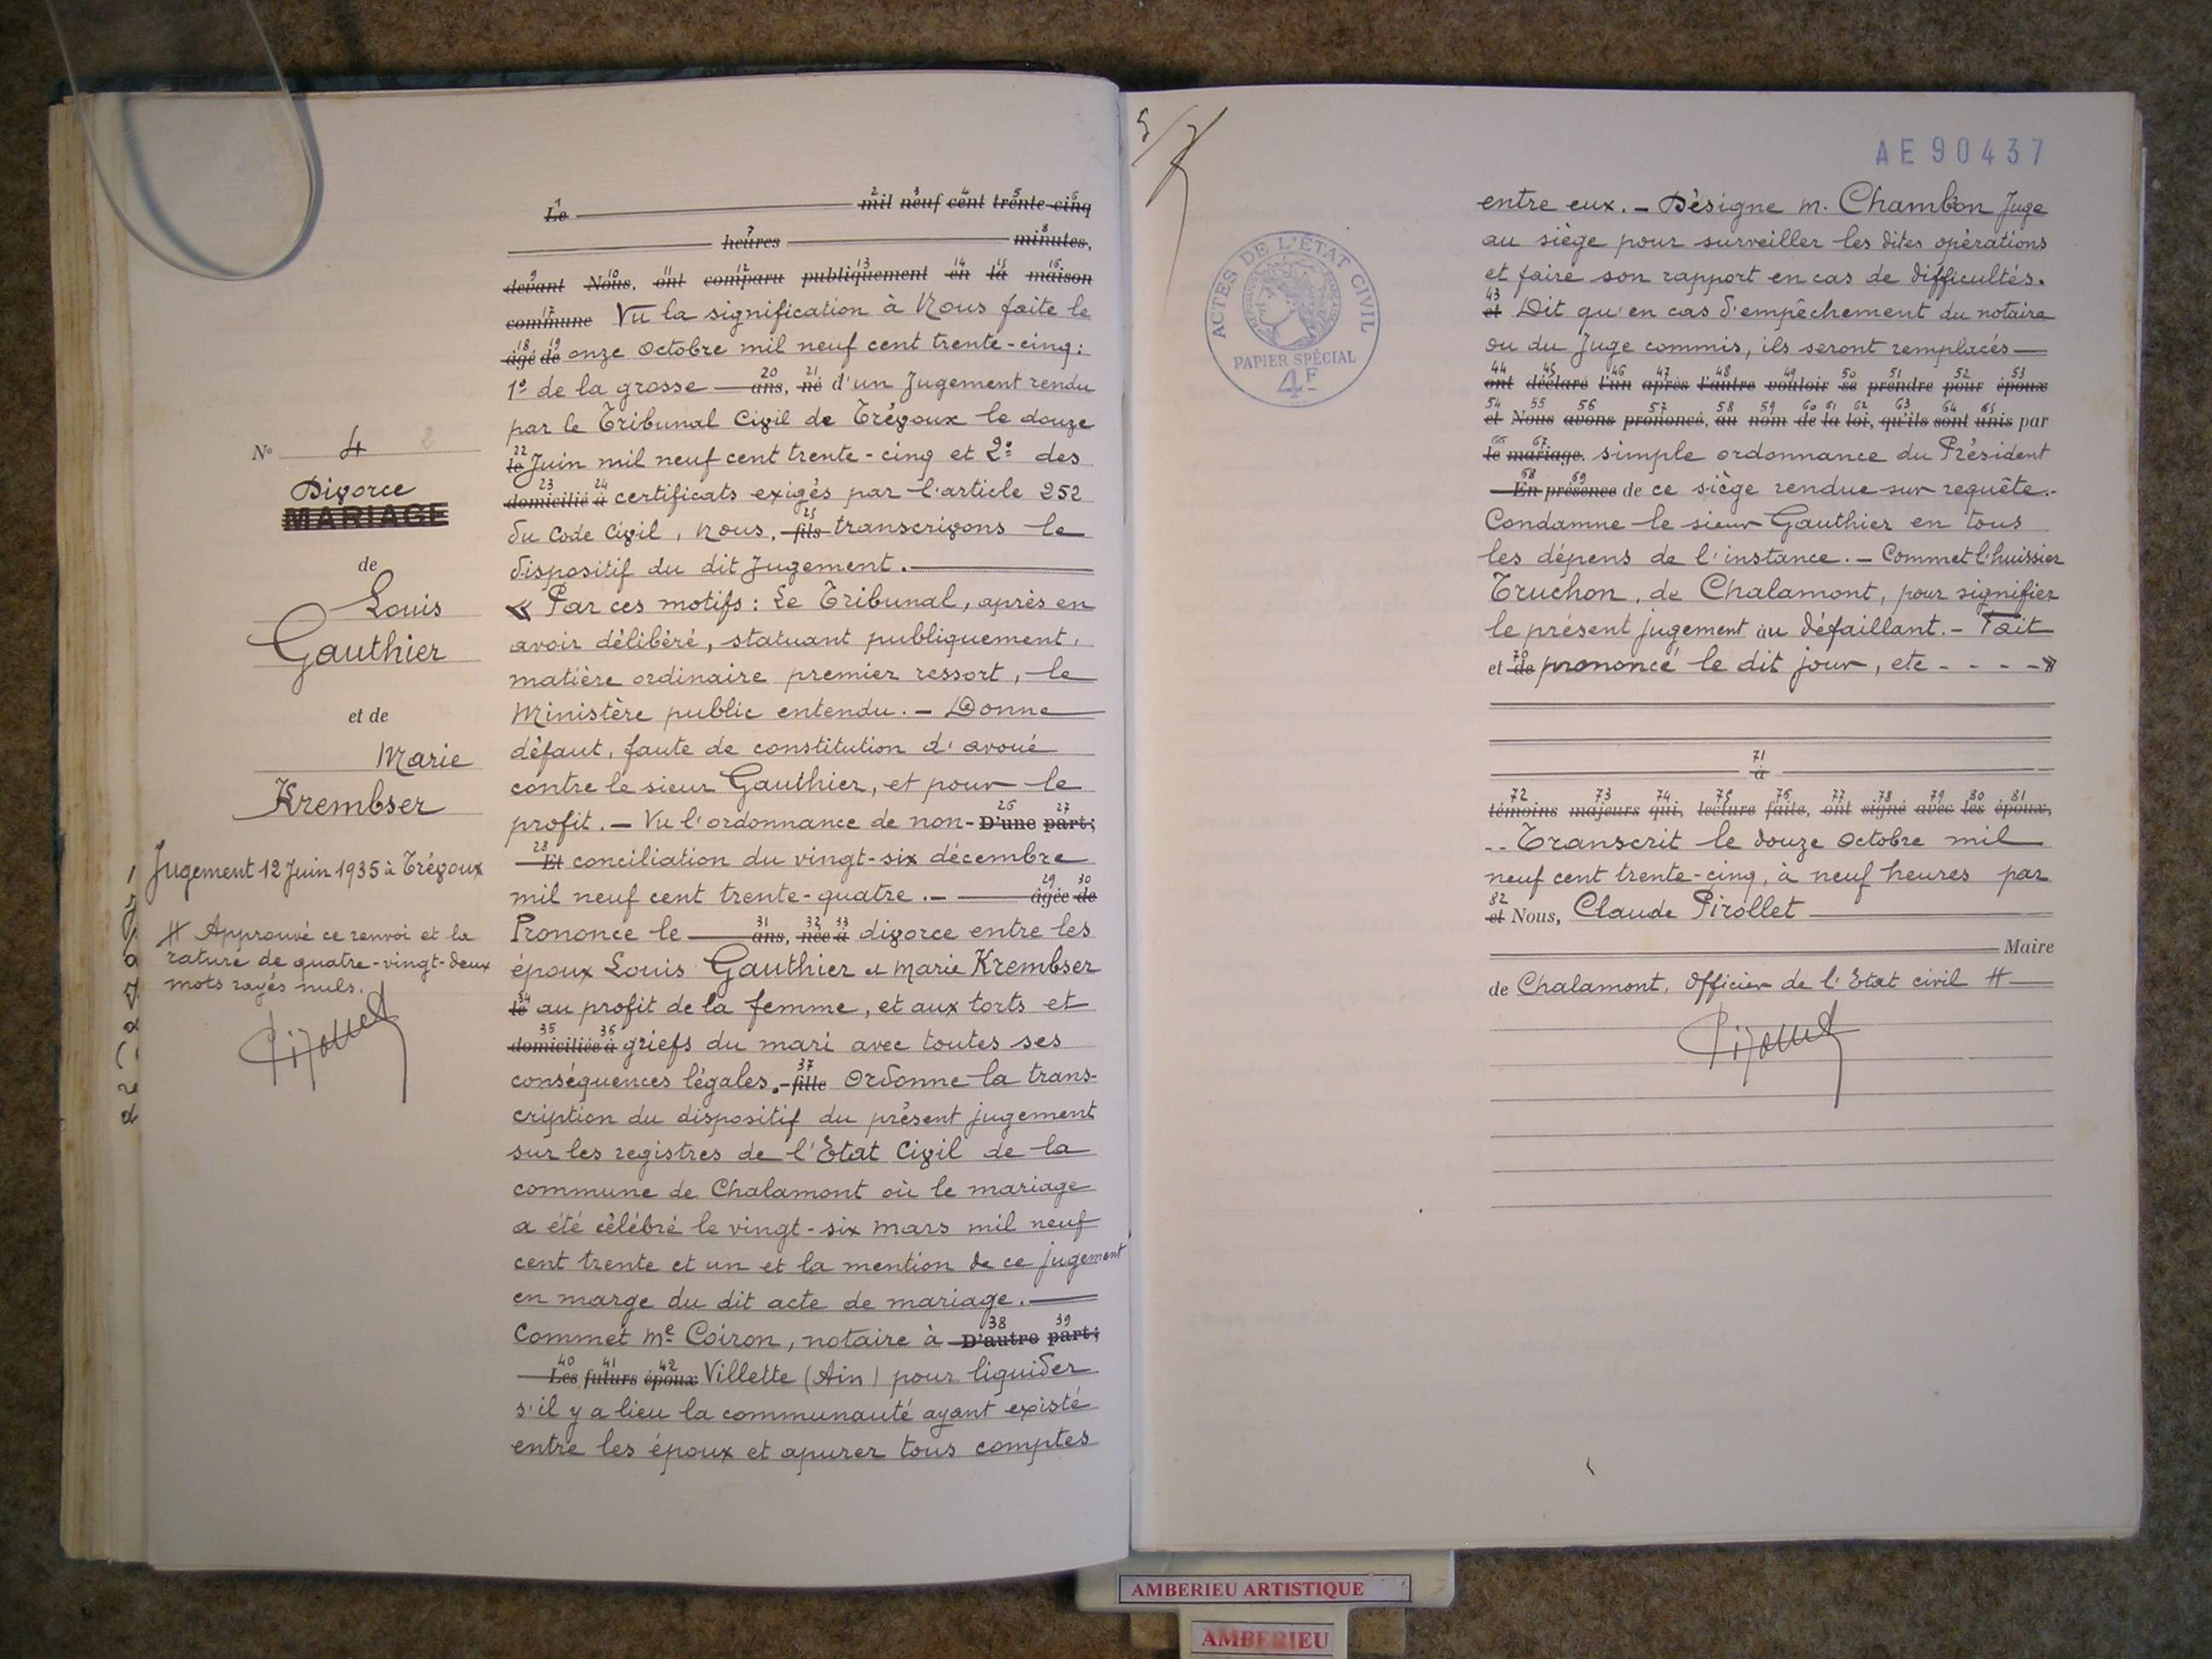 N° 4 2
Divorce
MARIAGE
de
Louis
Gauthier
et de
Marie
Krembser
Jugement 12 Juin 1935 à Trévoux
# Approuvé ce renvoi et la
rature de quatre-vingt-deux
mots rayés nuls.
1 2 3 4 5 6
Le mil neuf cent trente-cinq
7 8
heures minutes,
9 10 11 12 13 14 15 16
devant Nous, ont comparu publiquement en la maison
17
commune Vu la signification à Nous faite le
18 19
âgé de onze Octobre mil neuf cent trente-cinq :
20 21
1° de la grosse ans, né d'un Jugement rendu
par le Tribunal Civil de Trévoux le douze
22
le Juin mil neuf cent trente-cinq et 2° des
23 24
domicilié à certificats exigés par l'article 252
25
du Code Civil, nous, fils transcrivons le
dispositif du dit Jugement.
« Par ces motifs : Le Tribunal, après en
avoir délibéré, statuant publiquement,
matière ordinaire premier ressort, le
Ministère public entendu. - Donne
défaut, faute de constitution d'avoué
contre le sieur Gauthier, et pour le
26 27
profit. - Vu l'ordonnance de non- D'une part;
28
Et conciliation du vingt-six décembre
29 30
mil neuf cent trente-quatre. - âgée de
31 32 33
Prononce le ans, née à divorce entre les
époux Louis Gauthier et Marie Krembser
34
le au profit de la femme, et aux torts et
35 36
domiciliée à griefs du mari avec toutes ses
37
conséquences légales. - fille Ordonne la trans-
cription du dispositif du présent jugement
sur les registres de l'Etat Civil de la
commune de Chalamont où le mariage
a été célébré le vingt-six mars mil neuf
cent trente et un et la mention de ce jugement
en marge du dit acte de mariage.
38 39
Commet Me Coiron, notaire à D'autre part;
40 41 42
Les futurs époux Villette (Ain) pour liquider
s'il y a lieu la communauté ayant existé
entre les époux et apurer tous comptes
AE90437
ACTES DE L'ÉTAT CIVIL
PAPIER SPÉCIAL
4F
entre eux. - Désigne M. Chambon Juge
au siège pour surveiller les dites opérations
et faire son rapport en cas de difficultés.
43
et Dit qu'en cas d'empêchement du notaire
ou du Juge commis, ils seront remplacés
44 45 46 47 48 49 50 51 52 53
ont déclaré l'un après l'autre vouloir se prendre pour époux
54 55 56 57 58 59 60 61 62 63 64 65
et Nous avons prononcé, au nom de la loi, qu'ils sont unis par
66 67
le mariage. simple ordonnance du Président
68 69
En présence de ce siège rendue sur requête.-
Condamne le sieur Gauthier en tous
les dépens de l'instance. - Commet l'huissier
Truchon, de Chalamont, pour signifier
le présent jugement au défaillant. - Fait
70
et de prononcé le dit jour, etc - - - - »
71
à
72 73 74 75 76 77 78 79 80 81
témoins majeurs qui, lecture faite, ont signé avec les époux,
-- Transcrit le douze Octobre mil
neuf cent trente-cinq, à neuf heures par
82
et Nous, Claude Pirollet
Maire
de Chalamont, Officier de l'Etat civil #
AMBERIEU ARTISTIQUE
AMBERIEU